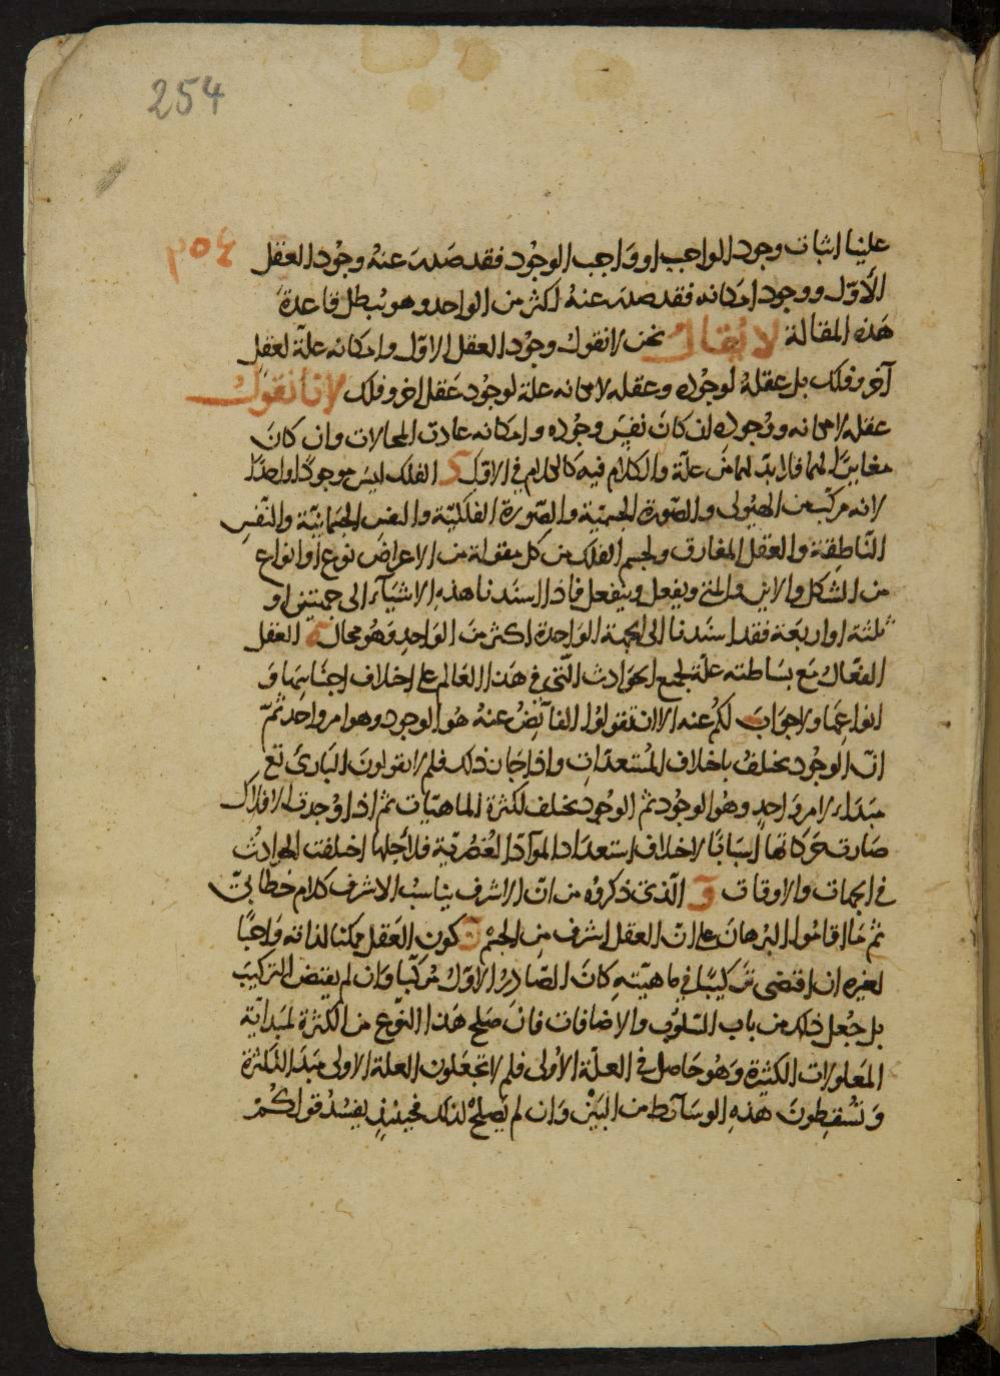 254
٢٥٤
علينا اثبات وجود الواجب او واجب الوجود فقد صدر عنه وجود العقل
الأوّل ووجود امكانه فقد صدر عنه اكثر من الواحد وهو يُبطل قاعدة
هذه المقالة لا يقال نحن لا نقول وجود العقل الاوّل وامكانه علّة لعقل
آخر وفلك بل عقله لوجوده وعقله لامكانه علة لوجود عقل اخر وفلك لانا نقول
عقله لامكانه ووجوده ان كان نفس وجوده وامكانه عادت المحالات وان كان
مغايرًا لهما فلا بدّ لهما من علّة والكلام فيه كالكلام في الاوّل الفلك ليس موجودًا واحدًا
لانه مركّب من الهيولى والصّورة الجسميّة والصّورة الفلكيّة والنفس الجسمانيّة والنّفس
النّاطقة والعقل المفارق ولجسم الفلك من كل مقولة من الاعراض نوع أو انواع
من الشكل والاين والمتى ويفعل وينفعل فاذا اسندنا هذه الاشياء الى جهتين او
ثلثة او اربعة فقد اسندنا الى الجهة الواحدة اكثر من الواحد وهو محال العقل
الفعّال مع بساطته علّة لجميع الحوادث الّتي في هذا العالم على اختلاف اجناسها و
انواعها ولا جواب لكم عنه الا ان تقولوا الفائض عنه هو الوجود وهو امر واحد ثمّ
انّ الوجود يختلف باختلاف المستعدّات واذا جاز ذلك فلم لا تقولون البارئ تع
مبداء لامر واحد وهو الوجود ثم الوجود يختلف لكثرة الماهيّات ثم اذا وُجدت الافلاك
صارت حركاتها اسبابًا لاختلاف استعداد الموادّ العُنصُريّة فلاجلها اختلفت الحوادث
في الجهات والاوقات و الّذي ذكروه من انّ الاشرف يناسب الاشرف كلام خطابيّ
ثم ما اقاموا البرهان على انّ العقل اشرف من الجسم كون العقل ممكنا لذاته واجبًا
لغيره ان اقتضى تركيبًا في ماهيّته كان الصّادر الاوّل مركّبا وان لم يقتض التركيب
بل جُعل ذلك من باب السّلوب والاضافات فان صلح هذا النّوع من الكثرة لمبدائيّة
المعلولات الكثيرة وهو حاصل في العلّة الأولى فلم لا تجعلون العلة الاولى مبدا للكثرة
وتُسقطون هذه الوسائط من البين وان لم يصلح لذلك فحينئذٍ يفسُد قولكم